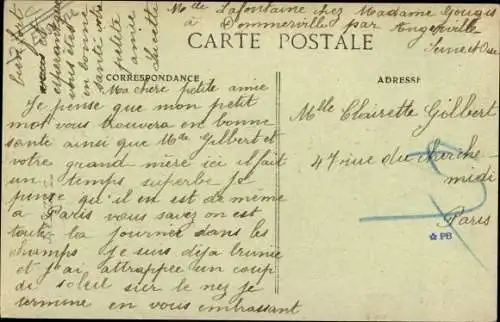 Mde Lafontaine chez Madame Gougis
à Dommerville par Angerville
Seine et Oise
CARTE POSTALE
CORRESPONDANCE
ADRESSE
Ma chère petite amie
Je pense que mon petit
mot vous trouvera en bonne
santé ainsi que Mde Gilbert et
votre grand mère ici il fait
un temps superbe je
pense qu'il en est de même
a Paris vous savez on est
toute la journée dans les
champs je suis déja brunie
et j'ai attrappée un coup
de soleil sur le nez je
termine en vous embrassant
bien fort
esperant que
vous etes
en bonne
santé votre
petite
amie
Lucette
Mlle Clairette Gilbert
47 rue du cherche
midi
Paris
PB